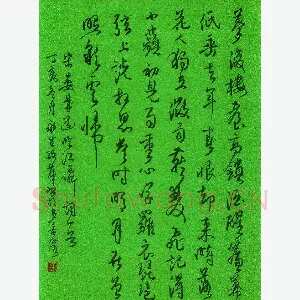 夢後樓臺高鎖酒醒簾幕
低垂去年春恨却来時落
花人獨立微雨燕雙飛記得
小蘋初見两重心字羅衣琵琶
弦上說相思當時明月在曾
照彩雲歸
宋晏幾道臨江仙詞
丁亥冬月